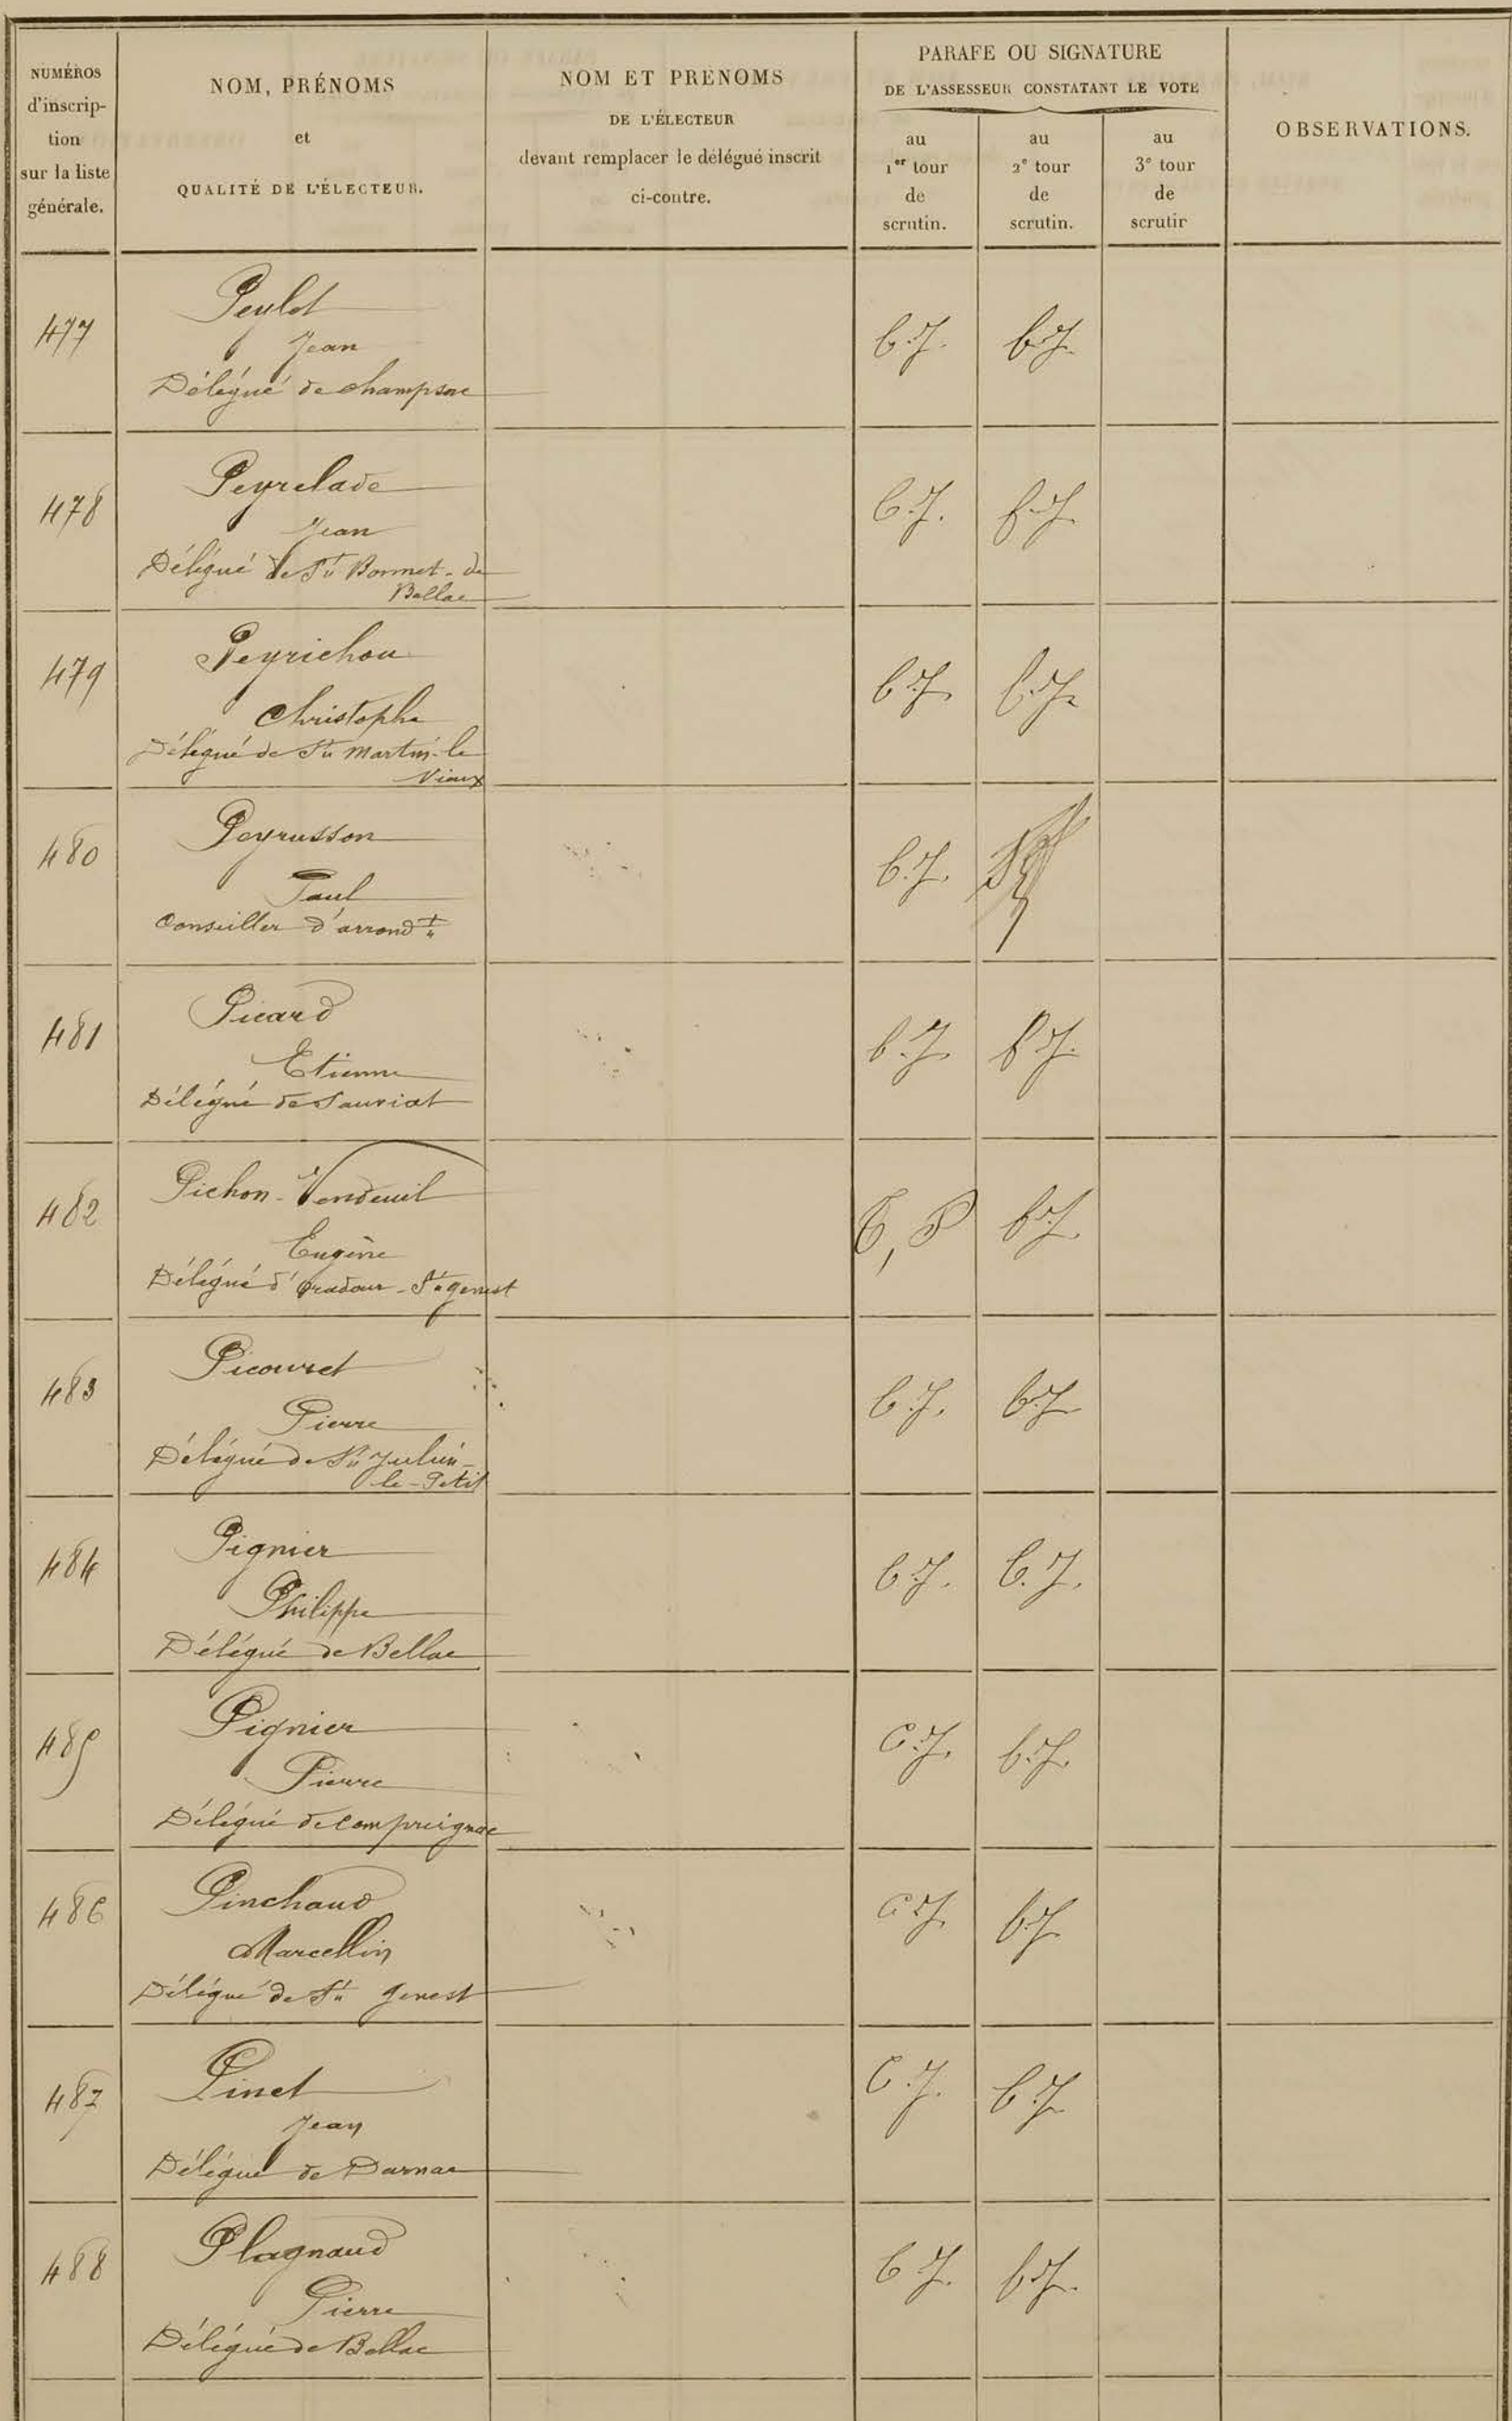 NUMÉROS
d'inscrip-
tion
sur la liste
générale.
NOM, PRÉNOMS
et
QUALITÉ DE L'ÉLECTEUR.
NOM ET PRENOMS
DE L'ÉLECTEUR
devant remplacer le délégué inscrit
ci-contre.
PARAFE OU SIGNATURE
DE L'ASSESSEUR CONSTATANT LE VOTE
au
1er tour
de
scrutin.
au
2e tour
de
scrutin.
au
3e tour
de
scrutin
OBSERVATIONS.
477
Peylot
Jean
Délégué de Champsac
478
Peyrelade
Jean
Délégué de St Bonnet-de
Bellac
479
Peyrichou
Christophe
Délégué de St Martin-le
Vieux
480
Peyrusson
Paul
Conseiller d'arrondt
481
Picard
Etienne
Délégué de Sauviat
482
Pichon-Vendeuil
Eugène
Délégué d'Oradour-St Genest
483
Picouret
Pierre
Délégué de St Julien-
le-Petit
484
Pignier
Philippe
Délégué de Bellac
485
Pignier
Pierre
Délégué de Compreignac
486
Pinchaud
Marcellin
Délégué de St Genest
487
Pinet
Jean
Délégué de Darnac
488
Plagnaud
Pierre
Délégué de Bellac